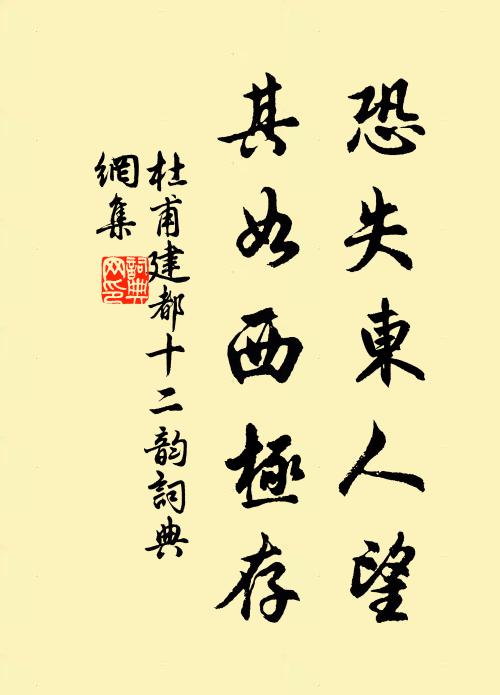 恐失東人望
其如西極存
杜甫建都十二韵詞典
網集
詞典網印